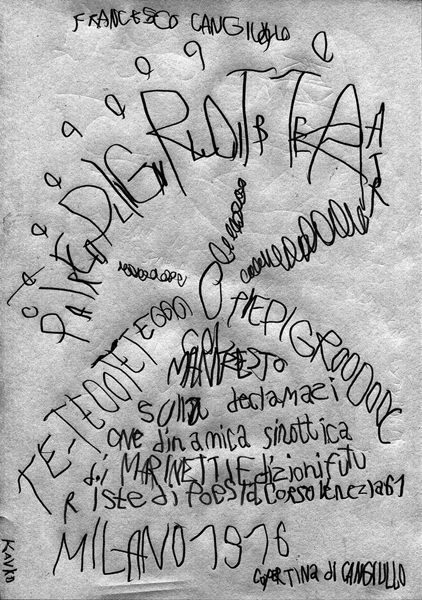 FRANCESCO CANGIULLO
PIEDIGROTTA
TE-TEOOTETEOOO
PIEPIGROOOOOE
COL
MANIFESTO
sulla declamazi
one dinamica sinottica
di MARINETTI Edizioni futu
Riste di poesia Corso Venezia 61
MILANO 1916
COPERTINA di CANGIULLO